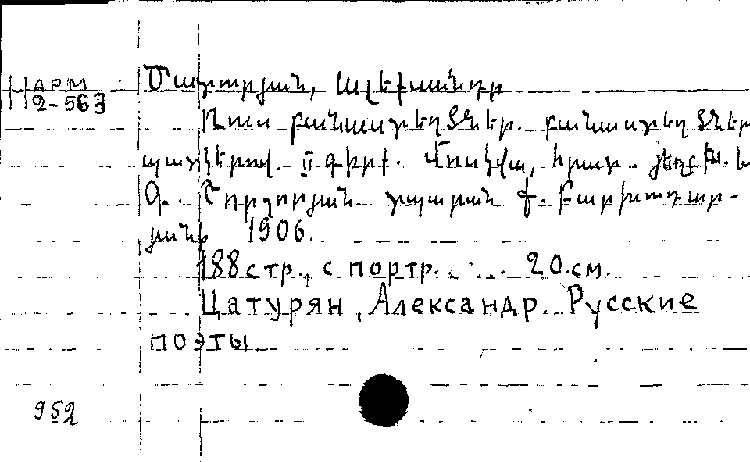 АРМ
2-563
Ծատուրյան, Ալեքսանդր
Ռուս բանաստեղծներ. բանաստեղծներ
պատկերով. II գիրք. Մոսկվա, հրատ.
Գ. տպարան Բարխուդար-
յանի 1906.
188 стр., с портр. 20 см.
Цатурян, Александр. Русские
поэты
952